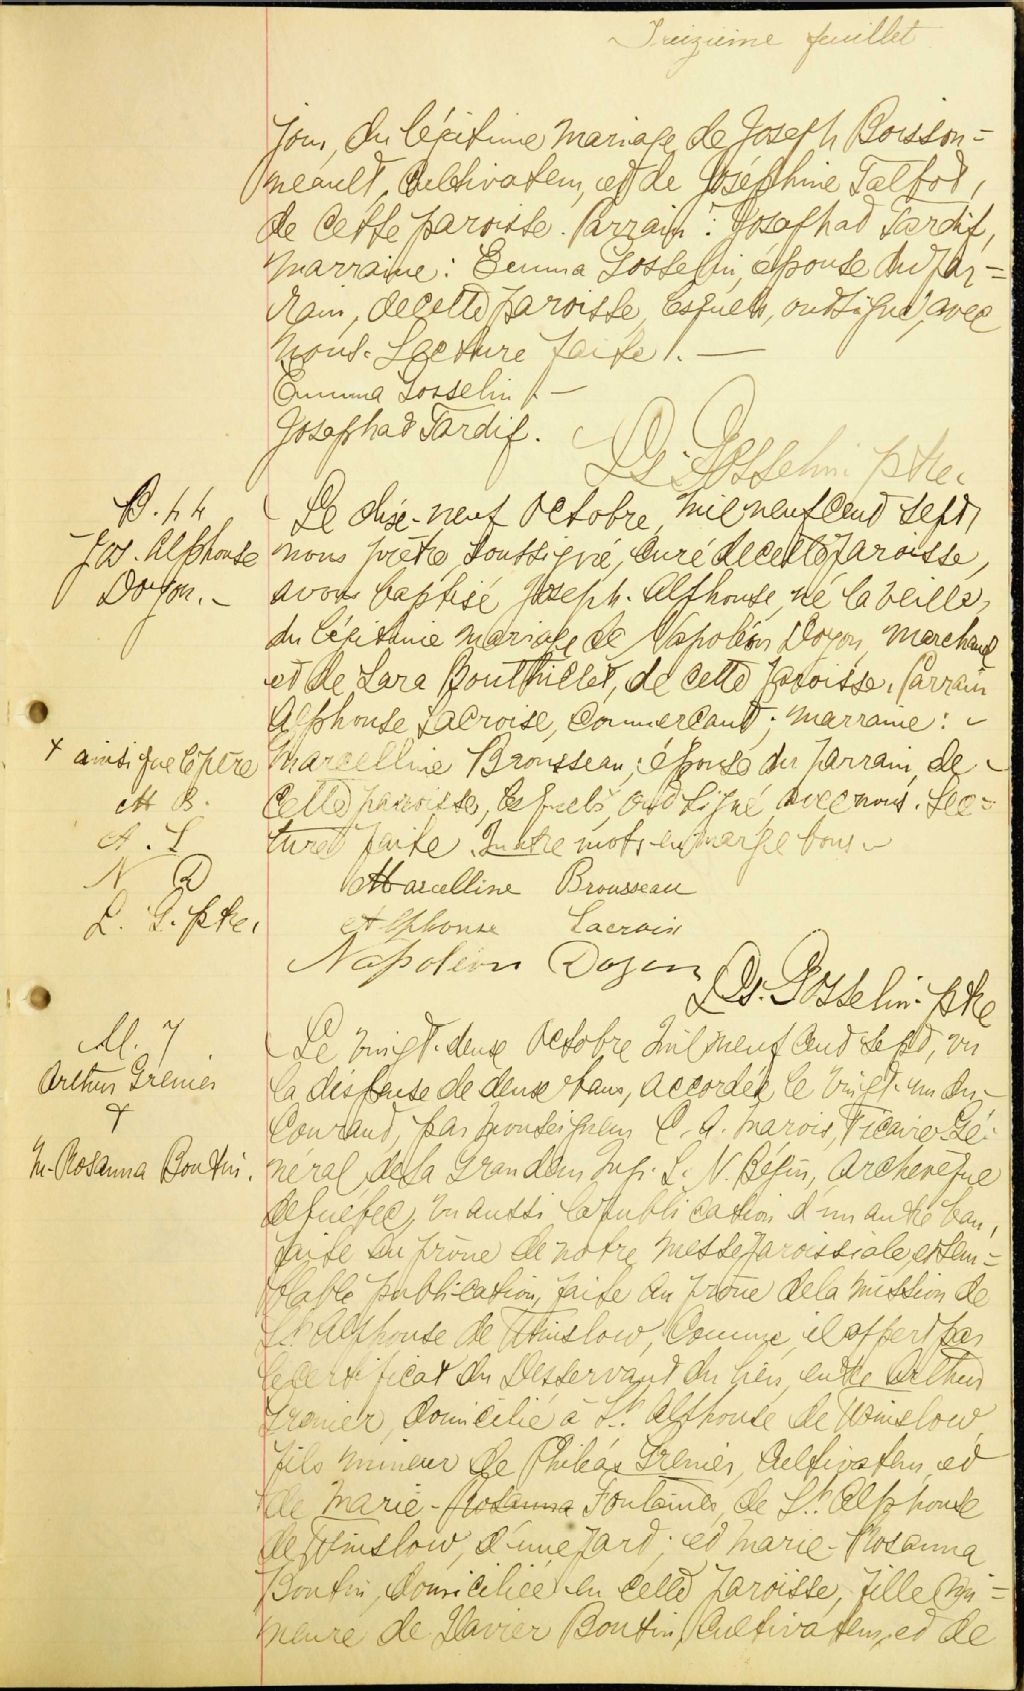 Treizième feuillet
jour, du légitime mariage de Joseph Boisson=
neault, Cultivateur, et de Joséphine Talbot,
de cette paroisse. Parrain: Josaphat Tardif,
marraine: Emma Gosselin, épouse du par=
rain, de cette paroisse, lesquels, ont signé, avec
nous. Lecture faite. —
Emma Gosselin. —
Josaphat Tardif.
Ls. Gosselin ptre.
B. 44
Jos. Alphonse
Doyon. -
Le dix-neuf Octobre, mil neuf cent sept,
nous prêtre, soussigné, Curé de cette paroisse,
avons baptisé Joseph. Alphonse, né la veille,
du légitime mariage de Napoléon Doyon, marchand
et de Lara Bouthillet, de cette paroisse. Parrain
Alphonse Lacroix, Commercant; marraine: -
Marcelline Brousseau; épouse du parrain, de -
cette paroisse, lesquels, ont signé, avec nous. Lec=
ture faite. Quatre mots en marge bons -
+ ainsi que le père
M B.
A. L
N D
L. G. ptre.
Marcelline Brousseau
Alphonse Lacroix
Napoléon Doyon
Ls. Gosselin ptre
M. 7
Arthur Grenier
+
M-Rosanna Boutin.
Le vingt-deux Octobre mil neuf cent sept, vu
la dispense de deux bans, accordée le vingt-un du
Courant, par Monseigneur C. A. Marois, Vicaire-Gé-
néral de Sa Grandeur Mgr. L. N. Bégin, Archevêque
de Québec, vu aussi la publication d'un autre ban,
faite au prône de notre messe paroissiale, et sem=
blable publication, faite au prône de la mission de
St. Alphonse de Winslow, Comme, il appert par
le certificat du Desservant du lieu, entre Arthur
Grenier, domicilié à St. Alphonse de Winslow,
fils mineur de Philéas Grenier, Cultivateur, et
de Marie-Rosanna Fontaine, de St. Alphonse
de Winslow, d'une part; et Marie-Rosanna
Boutin, domiciliée en cette paroisse, fille mi=
neure de Xavier Boutin, Cultivateur, et de